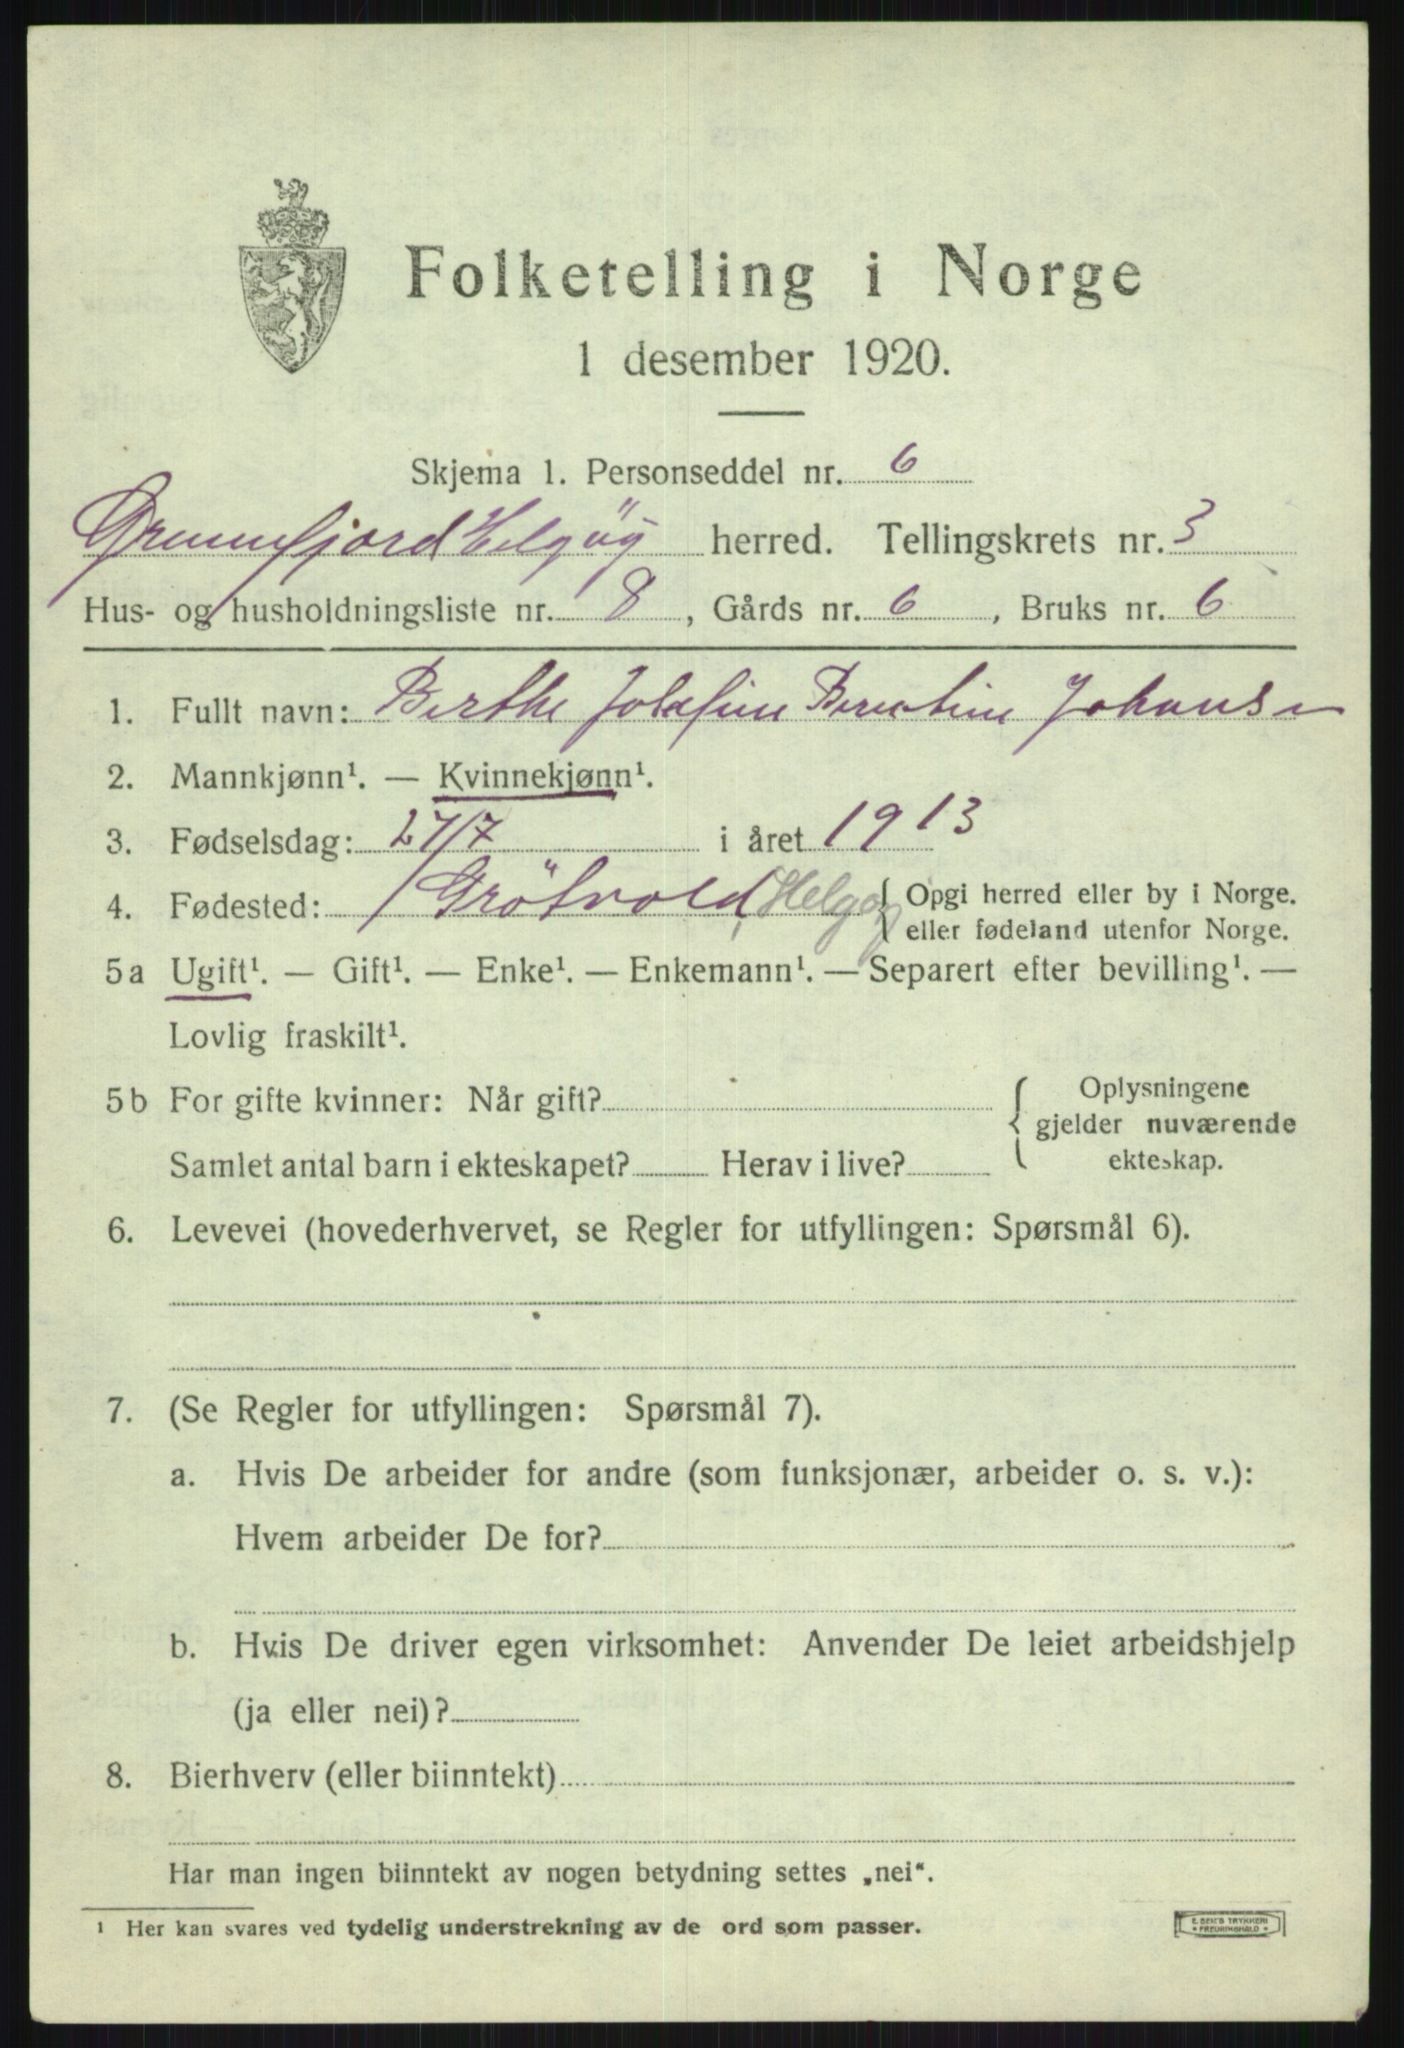 Folketelling i Norge
1 desember 1920.
Skjema 1. Personseddel nr. 6
Helgöy herred. Tellingskrets nr. 3
Hus- og husholdningsliste nr. 8, Gårds nr. 6, Bruks nr. 6
1. Fullt navn: Berthe Josefine Johans
2. Mannkjønn¹. — Kvinnekjønn¹.
3. Fødselsdag: 27/7 i året 1913
4. Fødested: Grötvold, Helgøy { Opgi herred eller by i Norge.
eller fødeland utenfor Norge.
5a Ugift¹. — Gift¹. — Enke¹. — Enkemann¹. — Separert efter bevilling¹. —
Lovlig fraskilt¹.
5b For gifte kvinner: Når gift? { Oplysningene
gjelder nuværende
Samlet antal barn i ekteskapet? Herav i live? ekteskap.
6. Levevei (hovederhvervet, se Regler for utfyllingen: Spørsmål 6).
7. (Se Regler for utfyllingen: Spørsmål 7).
a. Hvis De arbeider for andre (som funksjonær, arbeider o. s. v.):
Hvem arbeider De for?
b. Hvis De driver egen virksomhet: Anvender De leiet arbeidshjelp
(ja eller nei)?
8. Bierhverv (eller biinntekt)
Har man ingen biinntekt av nogen betydning settes „nei“.
¹ Her kan svares ved tydelig understrekning av de ord som passer.
E. SEM'S TRYKKERI
* FREDRIKSHALD *